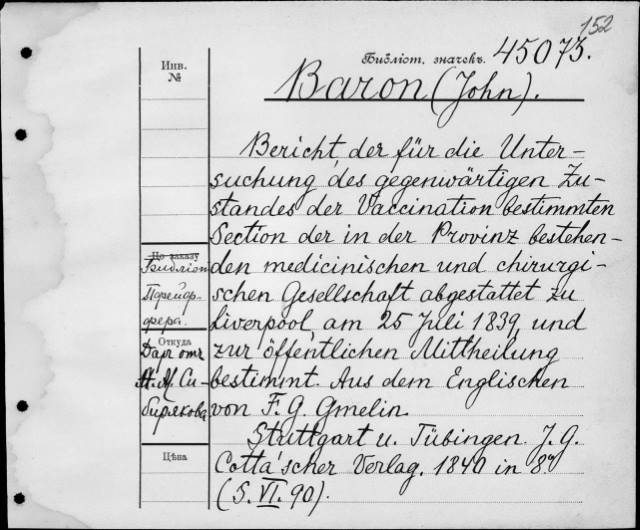 152
Библіот. значекъ. 45075.
Baron (John).
Инв.
№
Bericht, der für die Unter-
suchung des gegenwärtigen Zu-
standes der Vaccination bestimmten
Section der in der Provinz bestehen-
den medicinischen und chirurgi-
schen Gesellschaft abgestattet zu
Liverpool, am 25 Juli 1839, und
zur öffentlichen Mittheilung
bestimmt. Aus dem Englischen
von F. G. Gmelin.
Stuttgart u. Tübingen. J. G.
Cotta'scher Verlag. 1840 in 8º
(5. VI. 90).
По заказу
Библіот
Пфейф-
фера.
Откуда
Даръ отъ
Си-
бирякова
Цѣна